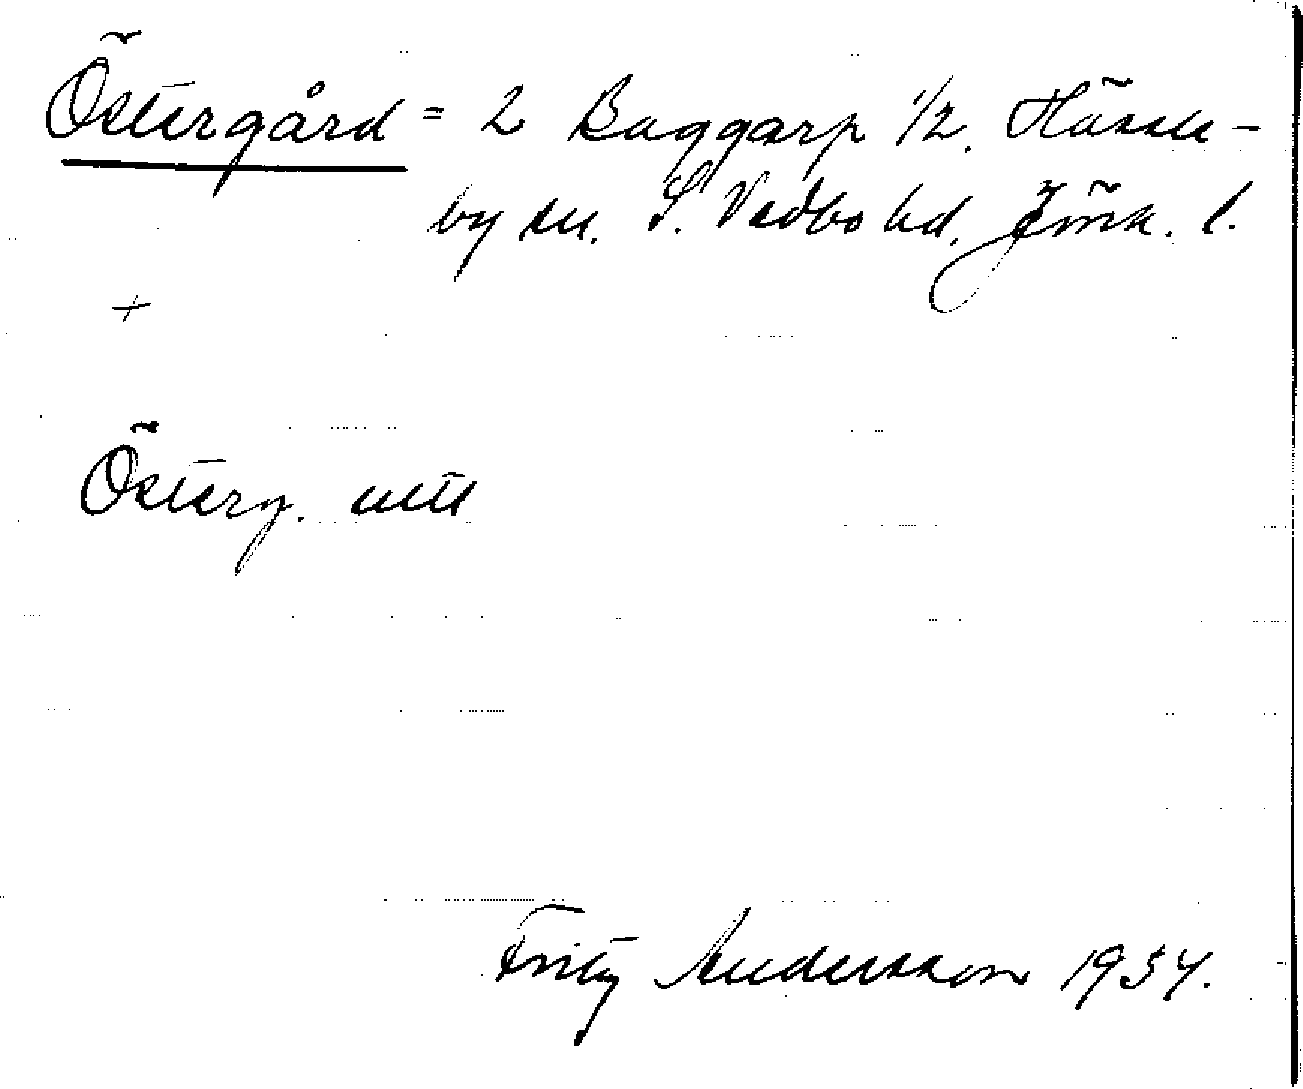 Östergård = 2 Baggarp 1/2. Hässle-
by sn. S. Vedbo hd. Jönk. l.
+
Österg.
Fritz Andersson